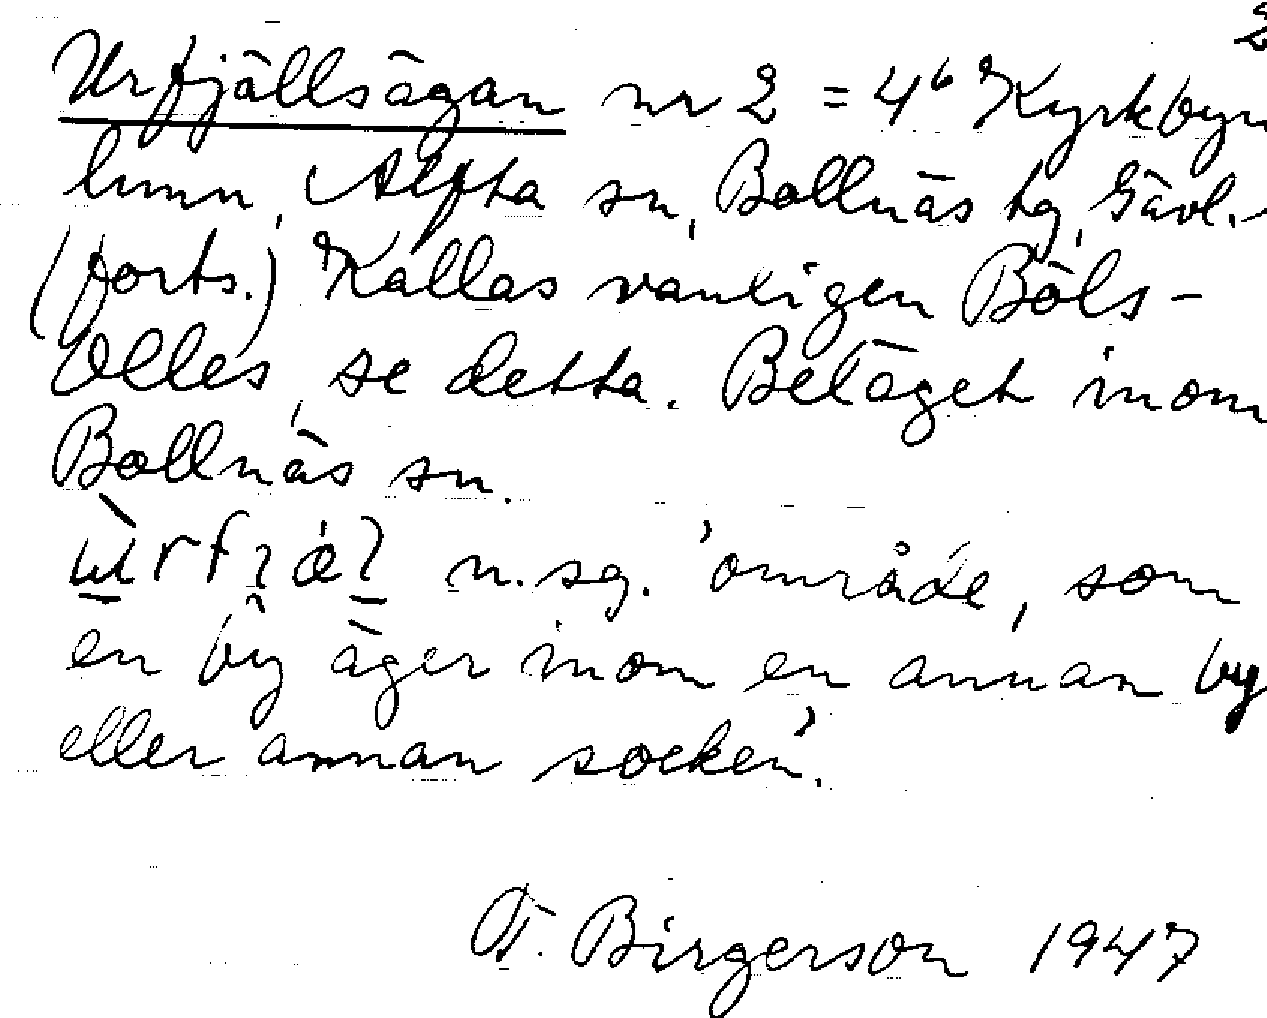 2
Urfjällsägan nr 2 = 4⁶ Kyrkbyn
Alfta sn, Bollnäs tg, Gävl.
(forts.) Kallas vanligen Böls-
Olles, se detta. Beläget inom
Bollnäs sn.
n.sg. 'område, som
en by äger inom en annan by
eller annan socken'.
F. Birgerson 1947